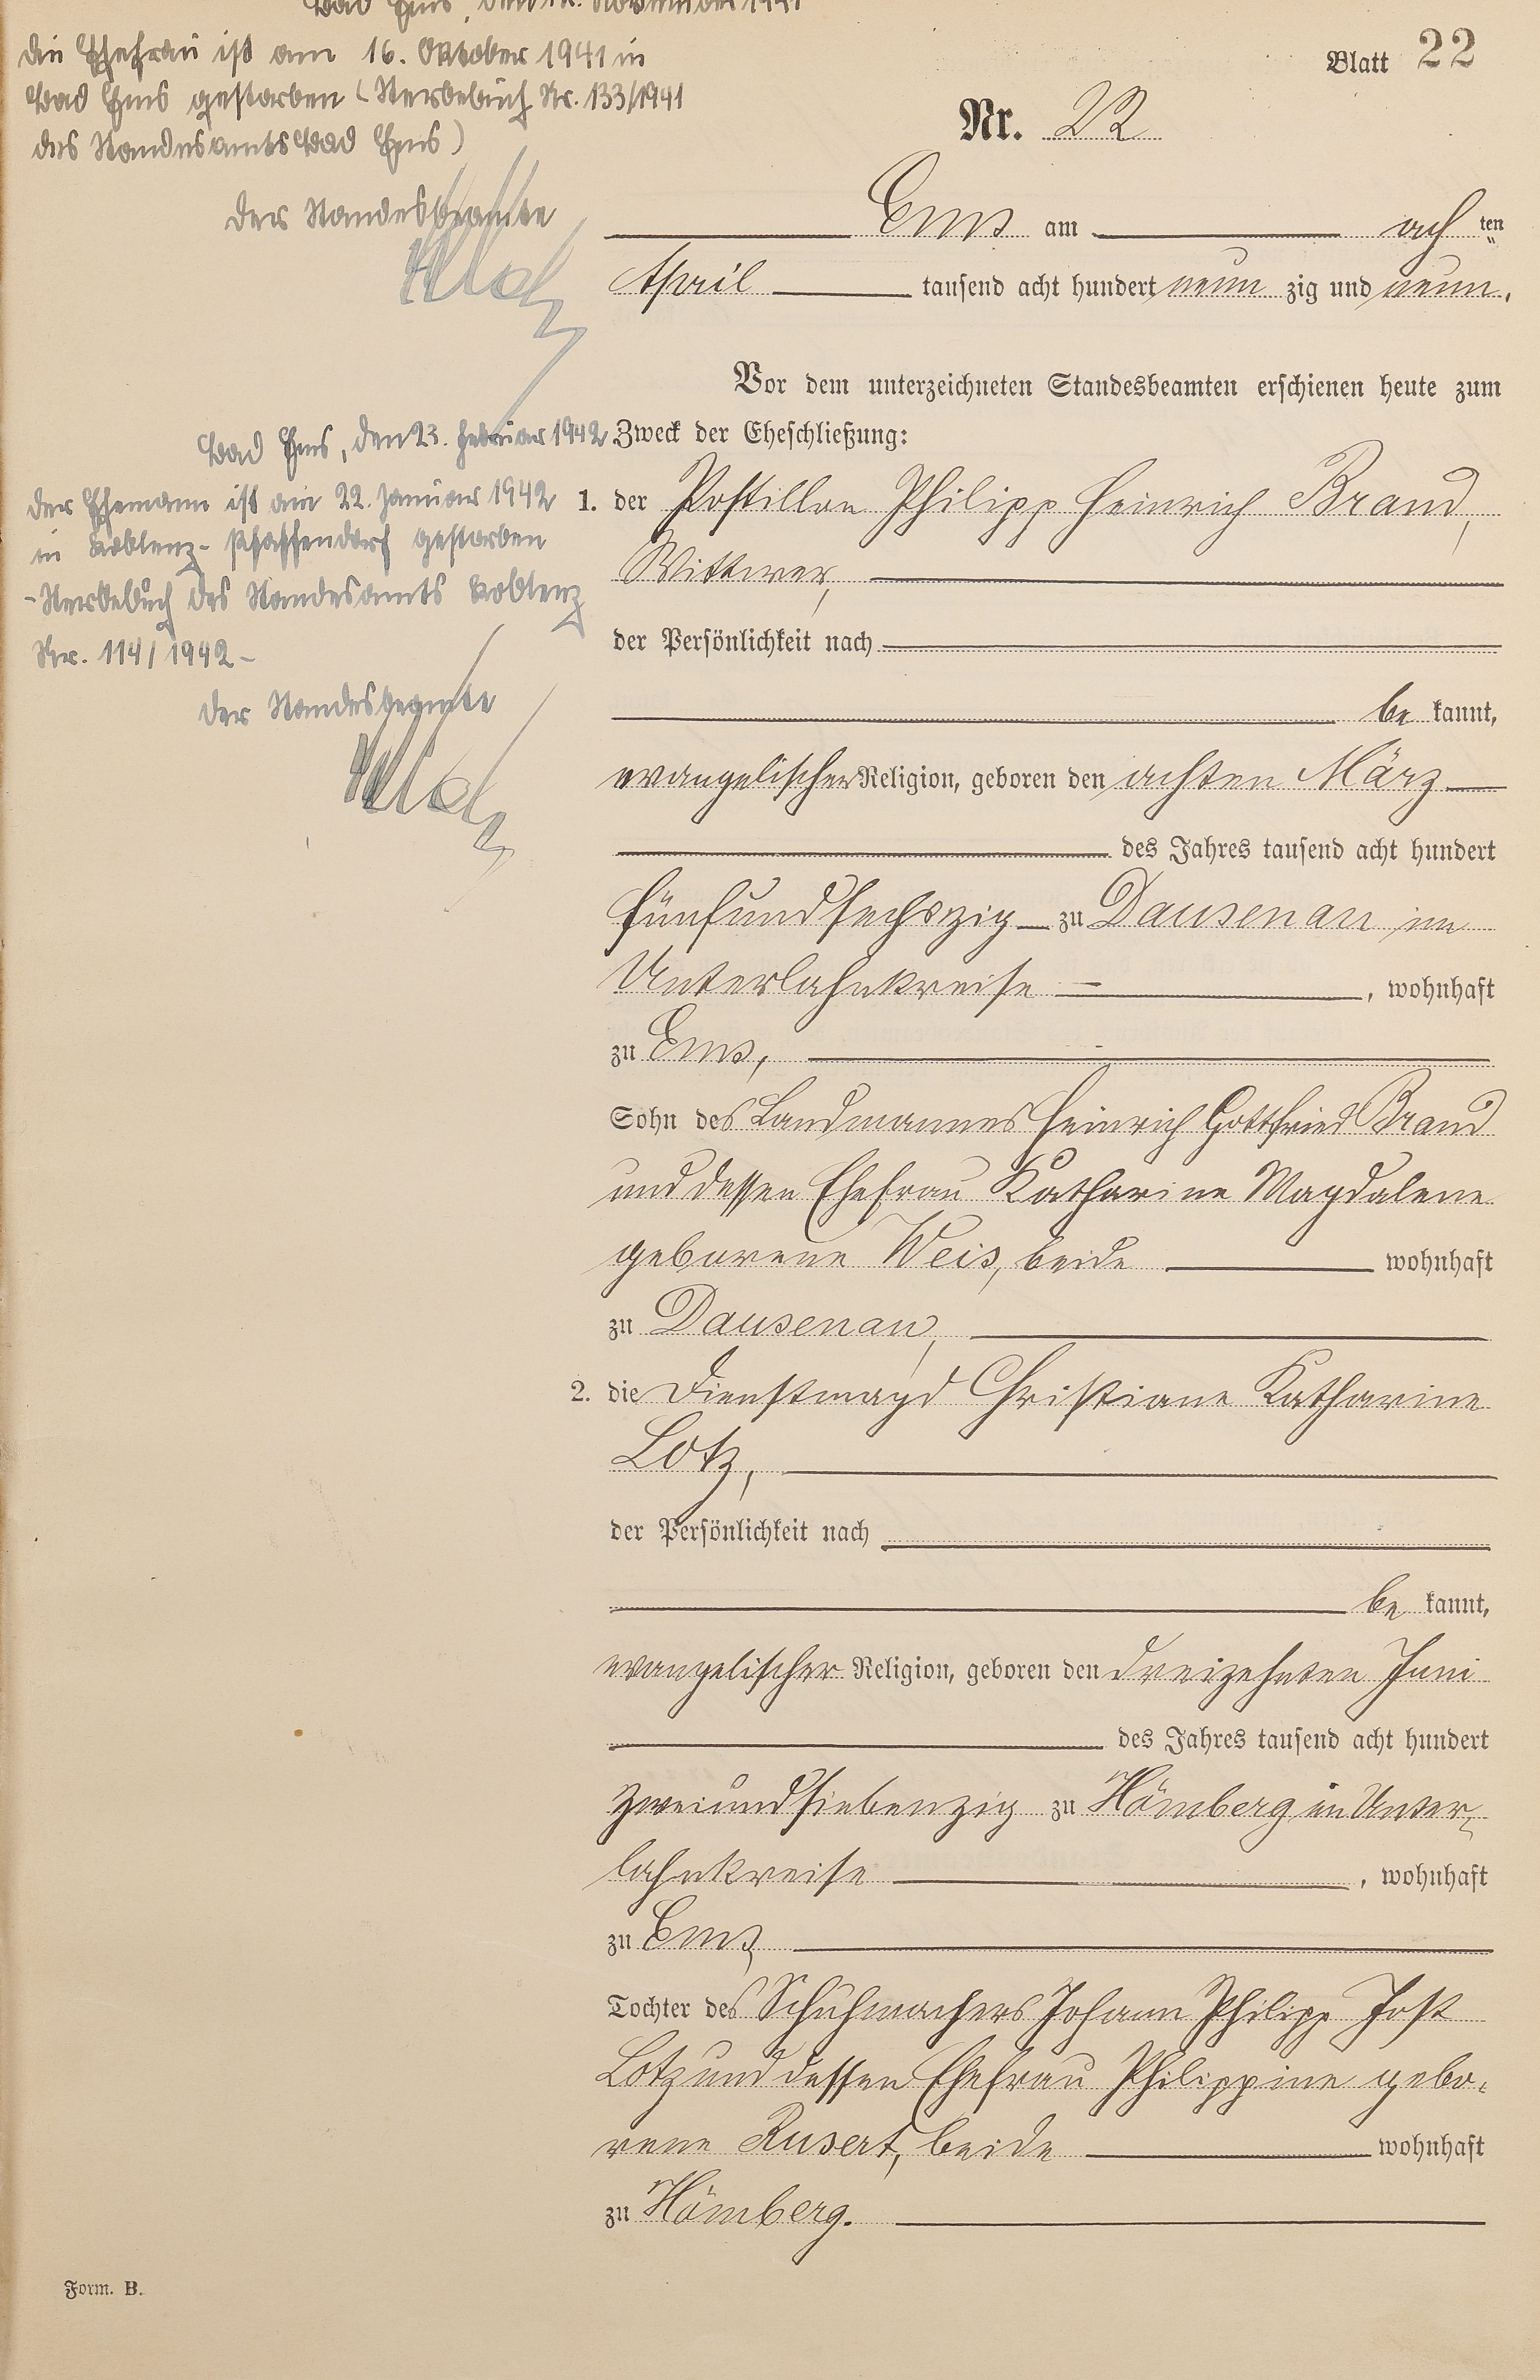 Bad Ems, den 12. November 1941
Die Ehefrau ist am 16. Oktober 1941 in
Bad Ems gestorben (Sterbebuch Nr. 133/1941
des Standesamts Bad Ems)
Der Standesbeamte
Blatt 22
Nr. 22
Ems am achten
April tausend acht hundert neunzig und neun.
Vor dem unterzeichneten Standesbeamten erschienen heute zum
Zweck der Eheschließung:
Bad Ems, den 23. Februar 1942
Der Ehemann ist am 22. Januar 1942
in Koblenz-Pfaffendorf gestorben
-Sterbebuch des Standesamts Koblenz
Nr. 114/1942-
Der Standesbeamte
1. der Postillon Philipp Heinrich Brand,
Wittwer,
der Persönlichkeit nach
bekannt,
evangelischer Religion, geboren den achten März
des Jahres tausend acht hundert
fünfundsechszig zu Dausenau im
Unterlahnkreise, wohnhaft
zu Ems,
Sohn des Landmannes Heinrich Gottfried Brand
und dessen Ehefrau Katharine Magdalene
geborene Weis, beide wohnhaft
zu Dausenau,
2. die Dienstmagd Christiane Katharine
Lotz,
der Persönlichkeit nach
bekannt,
evangelischer Religion, geboren den dreizehnten Juni
des Jahres tausend acht hundert
zweiundsiebenzig zu Hömberg im Unter-
lahnkreise, wohnhaft
zu Ems,
Tochter des Schuhmachers Johann Philipp Jost
Lotz und dessen Ehefrau Philippine gebo-
rene Rusert, beide wohnhaft
zu Hömberg.
Form. B.